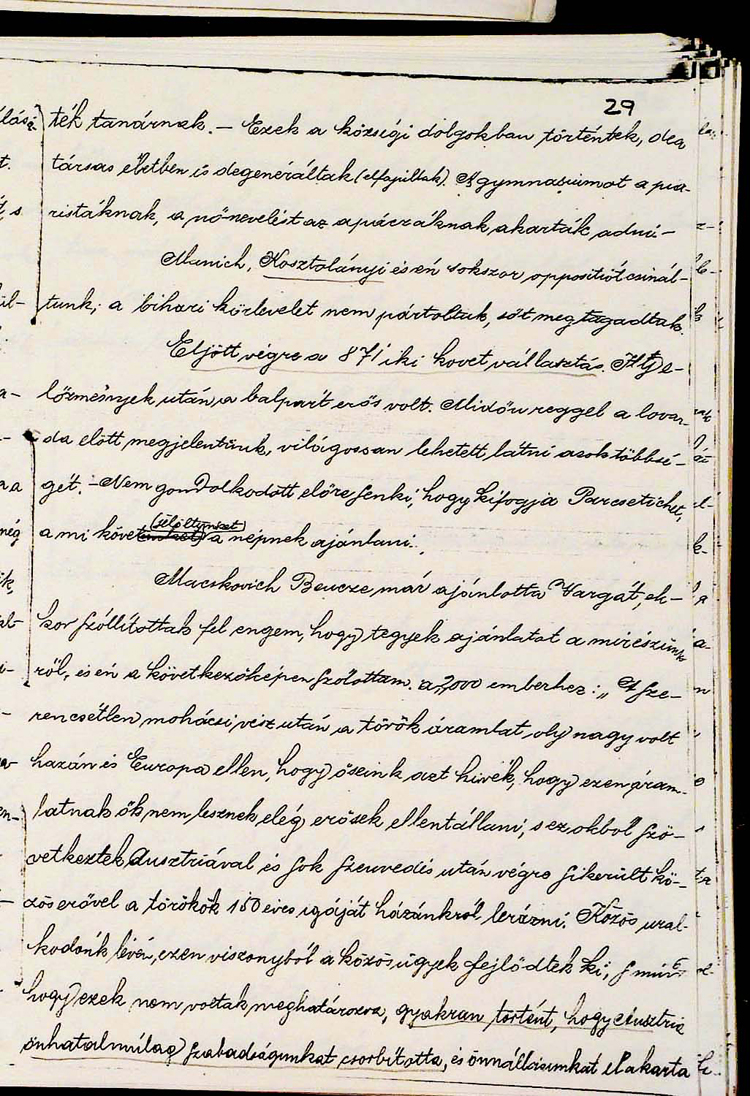 29
ték tanárnak. – Ezek a községi dolgokban történtek, de a
társas életben is degeneráltak (elfajultak). A gymnasiumot a pia-
ristáknak, a nőnevelést az apáczáknak akarták adni –
Munich, Kosztolányi és én sokszor oppositiót csinál-
tunk; a bihari körlevelet nem pártoltuk, sőt megtagadtuk.
Eljött végre a 871iki követválasztás. Ily e-
lőzmények után a balpárt erős volt. Midőn reggel a lovar-
da előtt megjelentünk, világossan lehetett látni azok többsé-
gét. – Nem gondolkodott előre senki, hogy kifogja
(jelöltünket)
a mi követ a népnek ajánlani.
Macskovich Bencze már ajánlotta Vargát, ek-
kor szóllítottak fel engem, hogy tegyek ajánlatot a mi részünk-
ről, és én a következőképen szólottam a 2,000 emberhez: „A sze-
rencsétlen mohácsi vész után a török áramlat oly nagy volt
hazán és Europa ellen, hogy őseink azt hivék, hogy ezen áram-
latnak ők nem lesznek elég erősek ellentállani, s ez okból szö-
vetkeztek Ausztriával és sok szenvedés után végre sikerült kö-
zös erővel a törökök 150 éves igáját házánkról lerázni. Közös ural-
kodónk lévén, ezen viszonyból a közös ügyek fejlődtek ki, s mivel
hogy ezek nem voltak meghatározva, gyakran történt, hogy Ausztria
önhatalmúlag szabadságunkat csorbította, és önnállásunkat el akarta